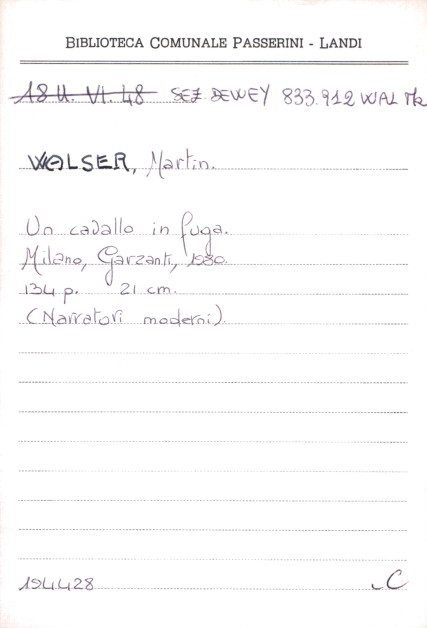 BIBLIOTECA COMUNALE PASSERINI - LANDI
18 U. VI. 48 SEZ DEWEY 833.912 WAL
WALSER, Martin.
Un cavallo in fuga.
Milano, Garzanti, 1980.
134 p. 21 cm.
(Narratori moderni).
194428 C